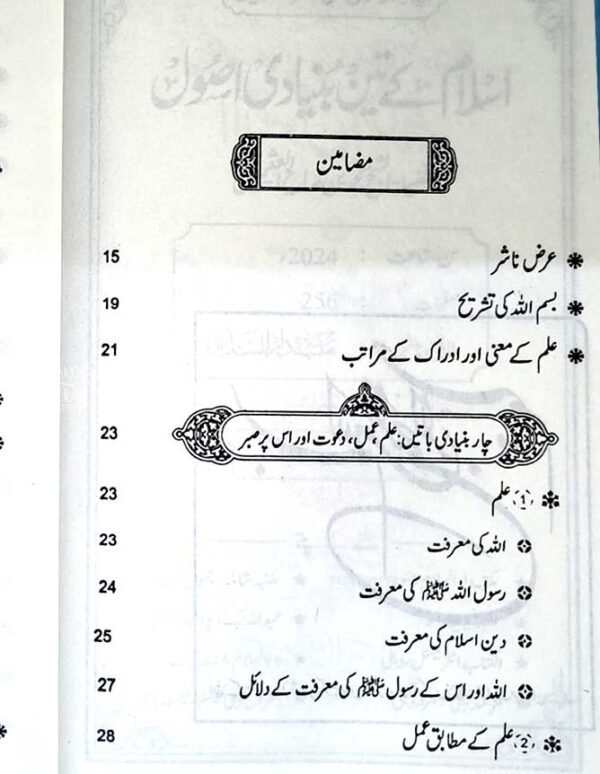 اسلام کے تین بنیادی اصول
مضامین
عرض ناشر 15
بسم اللہ کی تشریح 19
علم کے معنی اور ادراک کے مراتب 21
چار بنیادی باتیں: علم، عمل، دعوت اور اس پر صبر 23
﴿1﴾ علم 23
اللہ کی معرفت 23
رسول اللہ ﷺ کی معرفت 24
دین اسلام کی معرفت 25
اللہ اور اس کے رسول ﷺ کی معرفت کے دلائل 27
﴿2﴾ علم کے مطابق عمل 28